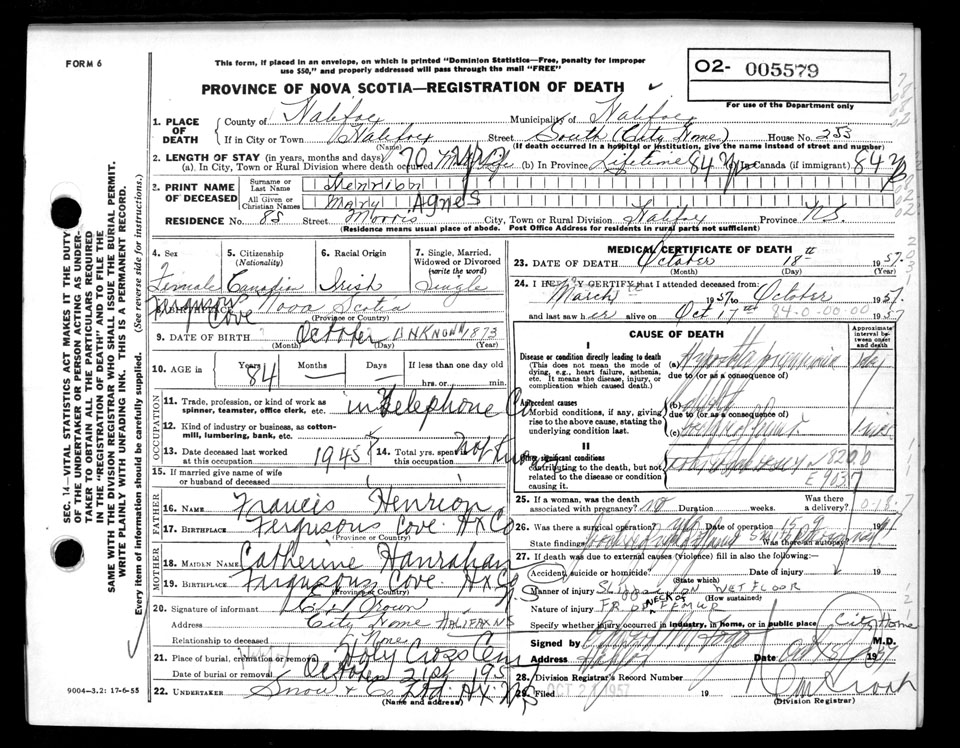 FORM 6
This form, if placed in an envelope, on which is printed "Dominion Statistics—Free, penalty for improper
use $50," and properly addressed will pass through the mail "FREE"
O2- 005579
For use of the Department only
PROVINCE OF NOVA SCOTIA—REGISTRATION OF DEATH
1. PLACE OF DEATH
County of Halifax Municipality of Halifax
If in City or Town Halifax Street South (City Home) House No. 253
(Name) (If death occurred in a hospital or institution, give the name instead of street and number)
2. LENGTH OF STAY (in years, months and days)
(a). In City, Town or Rural Division where death occurred 70 yrs (b) In Province Lifetime 84 yrs Canada (if immigrant) 84 y
3. PRINT NAME OF DECEASED
Surname or Last Name Henrion
All Given or Christian Names Mary Agnes
RESIDENCE No. 85 Street Morris City, Town or Rural Division Halifax Province N.S.
(Residence means usual place of abode. Post Office Address for residents in rural parts not sufficient)
SEC. 14—VITAL STATISTICS ACT MAKES IT THE DUTY
OF THE UNDERTAKER OR PERSON ACTING AS UNDER-
TAKER TO OBTAIN ALL THE PARTICULARS REQUIRED
IN THE "REGISTRATION OF DEATH" AND TO FILE THE
SAME WITH THE DIVISION REGISTRAR WHO SHALL ISSUE THE BURIAL PERMIT.
WRITE PLAINLY WITH UNFADING INK. THIS IS A PERMANENT RECORD.
Every item of information should be carefully supplied. (See reverse side for instructions.)
4. Sex 5. Citizenship (Nationality) 6. Racial Origin 7. Single, Married, Widowed or Divorced (write the word)
Female Canadian Irish Single
Fergusons Cove Nova Scotia
8. BIRTHPLACE (Province or Country)
9. DATE OF BIRTH October UNKNOWN 1873
(Month) (Day) (Year)
10. AGE in Years 84 Months — Days — If less than one day old hrs. or min.
OCCUPATION
11. Trade, profession, or kind of work as spinner, teamster, office clerk, etc. in Telephone Co
12. Kind of industry or business, as cotton-mill, lumbering, bank, etc.
13. Date deceased last worked at this occupation 1945 14. Total yrs. spent in this occupation Not Known
15. If married give name of wife or husband of deceased
FATHER
16. Name Francis Henrion
17. Birthplace Fergusons Cove Hx Co
(Province or Country)
MOTHER
18. Maiden Name Catherine Hanrahan
19. Birthplace Fergusons Cove. Hx Co
(Province or Country) N.S.
20. Signature of informant Brown
Address City Home HALIFAX NS
Relationship to deceased None
21. Place of burial, cremation or removal Holy Cross Cem
Date of burial or removal October 21 195
22. UNDERTAKER Snow & Co Ltd. Hx NS
(Name and address)
9004—3.2: 17-6-55
MEDICAL CERTIFICATE OF DEATH
23. DATE OF DEATH October 18th 1957.
(Month) (Day) (Year)
24. I HEREBY CERTIFY that I attended deceased from
March 1957 to October 1957.
and last saw her alive on Oct 17th 1957
84-0-00-00
CAUSE OF DEATH
Approximate interval between onset and death
I
Disease or condition directly leading to death
(This does not mean the mode of
dying, e.g., heart failure, asthenia,
etc. It means the disease, injury, or
complication which caused death.)
(a) pneumonia
due to (or as a consequence of)
Antecedent causes
Morbid conditions, if any, giving
rise to the above cause, stating the
underlying condition last.
(b)
due to (or as a consequence of)
(c)
II
Other significant conditions
contributing to the death, but not
related to the disease or condition
causing it.
820.0
E 903
25. If a woman, was the death associated with pregnancy? no Duration weeks. Was there a delivery?
26. Was there a surgical operation? Date of operation
State findings Was there an autopsy?
27. If death was due to external causes (violence) fill in also the following:
Accident, suicide or homicide? Date of injury 19
(State which)
Manner of injury SLIPPED ON WET FLOOR
(How sustained)
Nature of injury FR OF NECK OF FEMUR
Specify whether injury occurred in industry, in home, or in public place City Home
Signed by M.D.
Address Halifax Date Oct 1957
28. Division Registrar's Record Number
29. Filed OCT 21 1957 19
(Division Registrar)